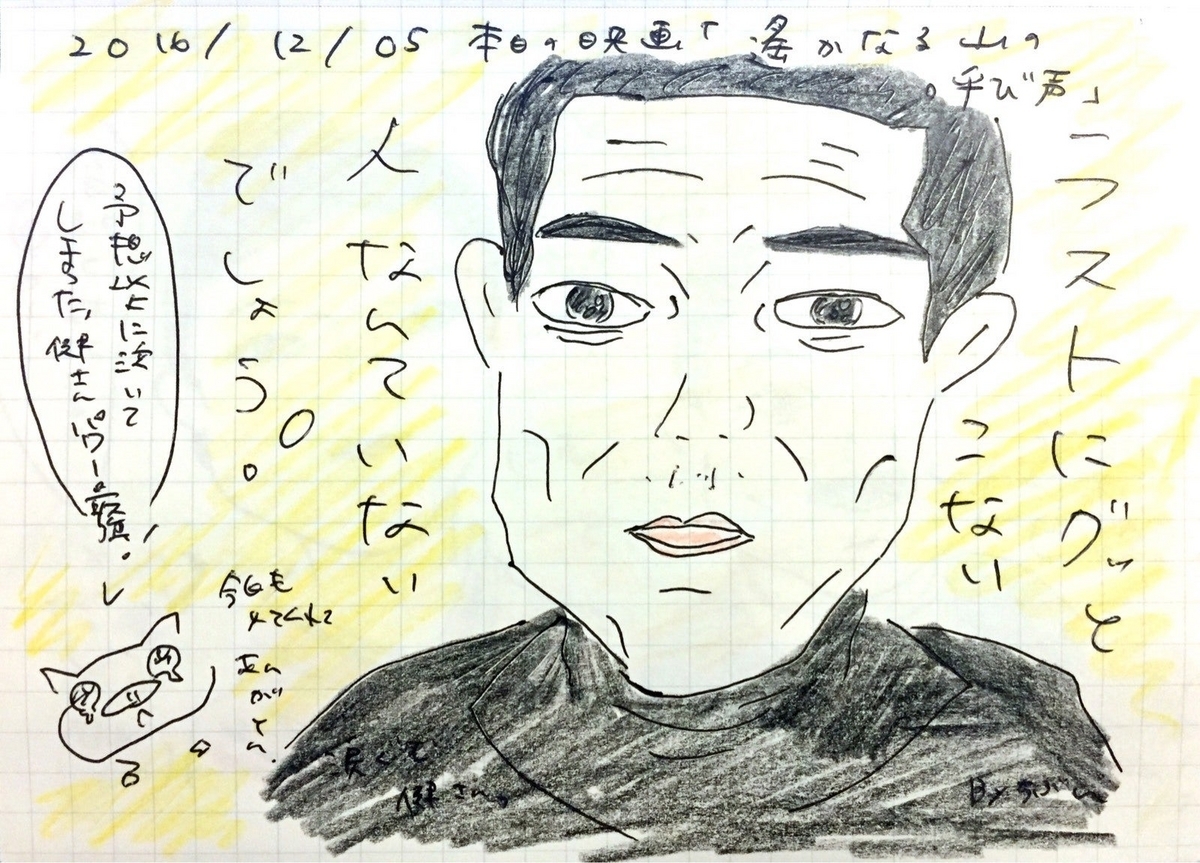 2016/12/05 本日の映画「遙かなる山の
呼び声」
ラストにグッと
こない
人なんていない
でしょう。
予想以上に泣いて
しまった、健さんパワー。
今日も
みてくれて
ありがとん。
健さん。